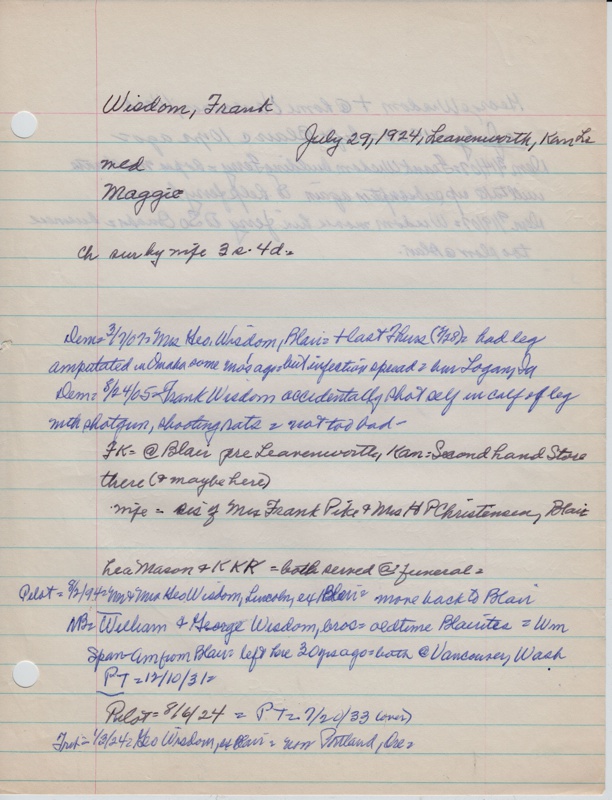 Wisdom, Frank
July 29, 1924, Leavenworth, Kan
med
Maggie
ch sur by wife 3 s. 4 d. =
Dem= 3/7/07= Mrs Geo. Wisdom, Blair= + last Thurs (2/28)= had leg
amputated in Omaha some mos ago= but infection spread = bur Logan, Ia
Dem= 8/24/05= Frank Wisdom accidentally shot self in calf of leg
with shotgun, shooting rats = not too bad-
FK= @ Blair pre Leavenworth, Kan= Second hand Store
there (& maybe here)
wife = sis of Mrs Frank Pike & Mrs H P Christensen, Blair
Mason & KKK = both served @ funeral =
Pilot= 8/2/94= Mr & Mrs Geo Wisdom, Lincoln, ex Blair= move back to Blair
NB= William & George Wisdom, bros= oldtime Blairites = Wm
Span-Am from Blair= left here 30 yrs ago= both @ Vancouver, Wash
PT= 12/10/31=
Pilot= 8/6/24 = PT= 7/20/33 (over)
1/3/24= Geo Wisdom, ex Blair= now Portland, Ore=